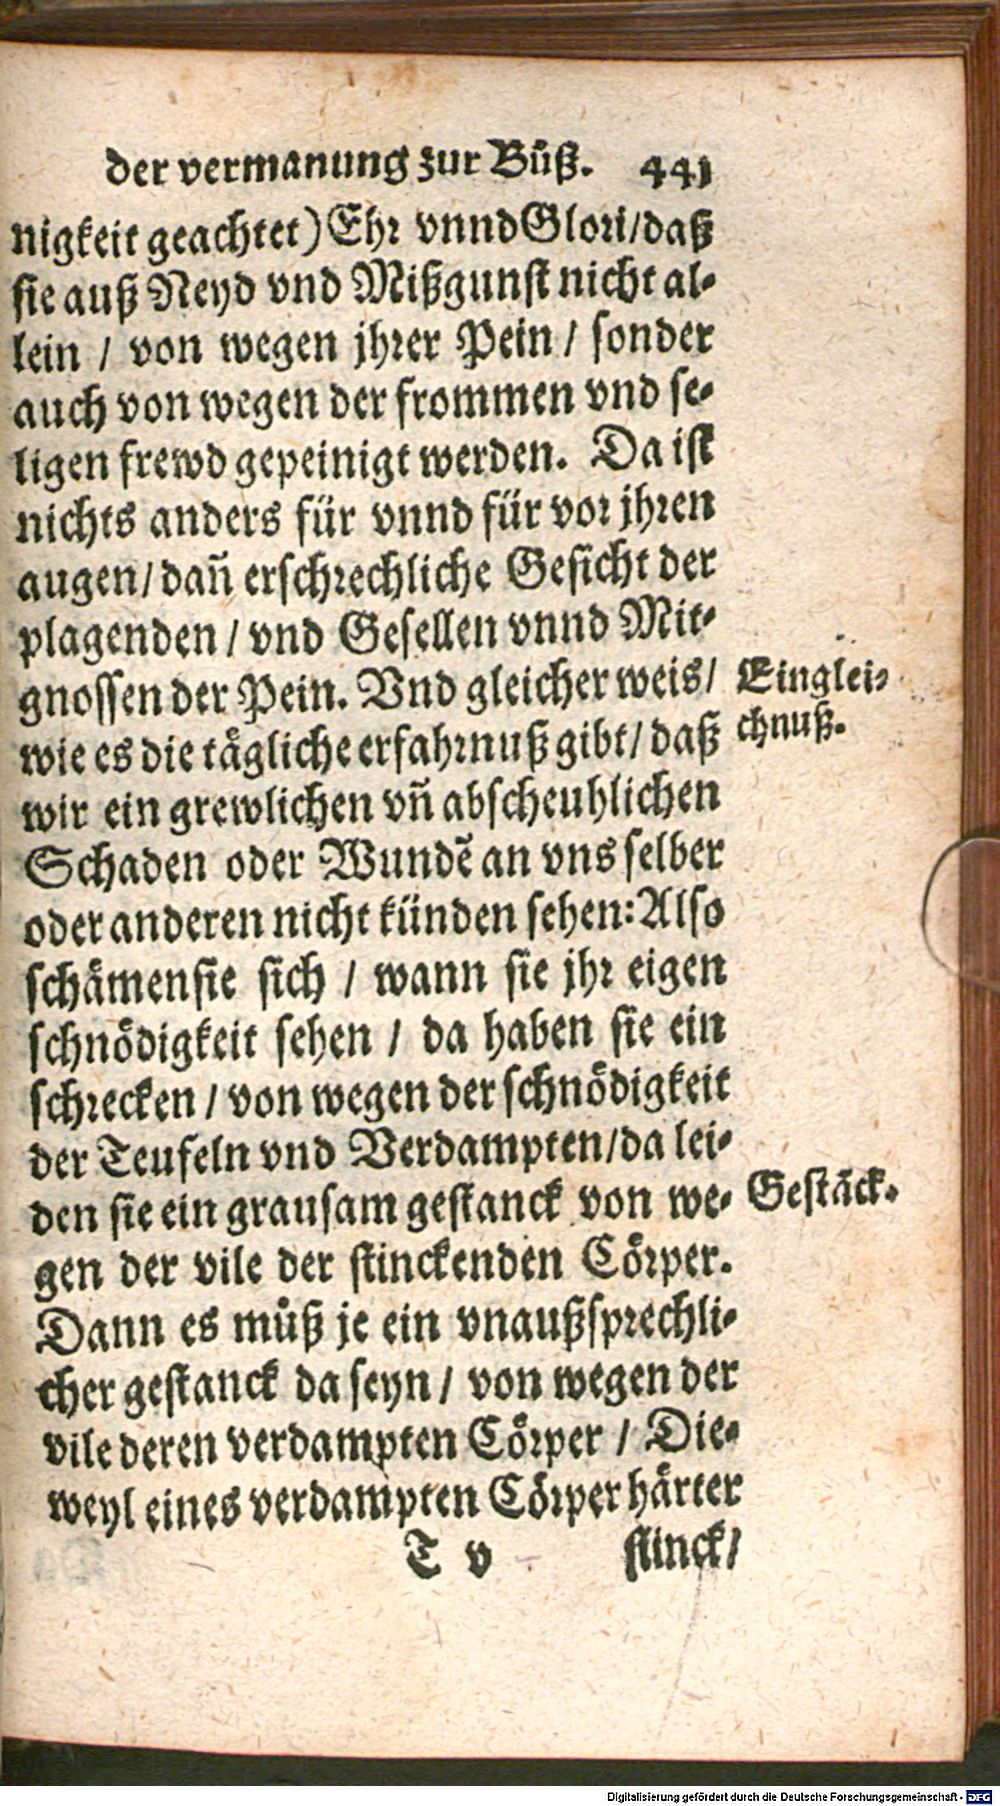 der vermanung zur Bůß. 441
nigkeit geachtet) Ehr vnnd Glori/daß
sie auß Neyd vnd Mißgunst nicht al-
lein / von wegen jhrer Pein / sonder
auch von wegen der frommen vnd se-
ligen frewd gepeinigt werden. Da ist
nichts anders für vnnd für vor jhren
augen/ dañ erschrechliche Gesicht der
plagenden / vnd Gesellen vnnd Mit-
gnossen der Pein. Vnd gleicher weis/
Ein glei-
chnuß.
wie es die tägliche erfahrnuß gibt/ daß
wir ein grewlichen vñ abscheuhlichen
Schaden oder Wundẽ an vns selber
oder anderen nicht künden sehen: Also
schämen sie sich / wann sie jhr eigen
schnödigkeit sehen / da haben sie ein
schrecken / von wegen der schnödigkeit
der Teufeln vnd Verdampten/da lei-
den sie ein grausam gestanck von we-
Gestãck.
gen der vile der stinckenden Cörper.
Dann es můß je ein vnaußsprechli-
cher gestanck da seyn / von wegen der
vile deren verdampten Cörper / Die-
weyl eines verdampten Cörper härter
T v stinck/
Digitalisierung gefördert durch die Deutsche Forschungsgemeinschaft - DFG